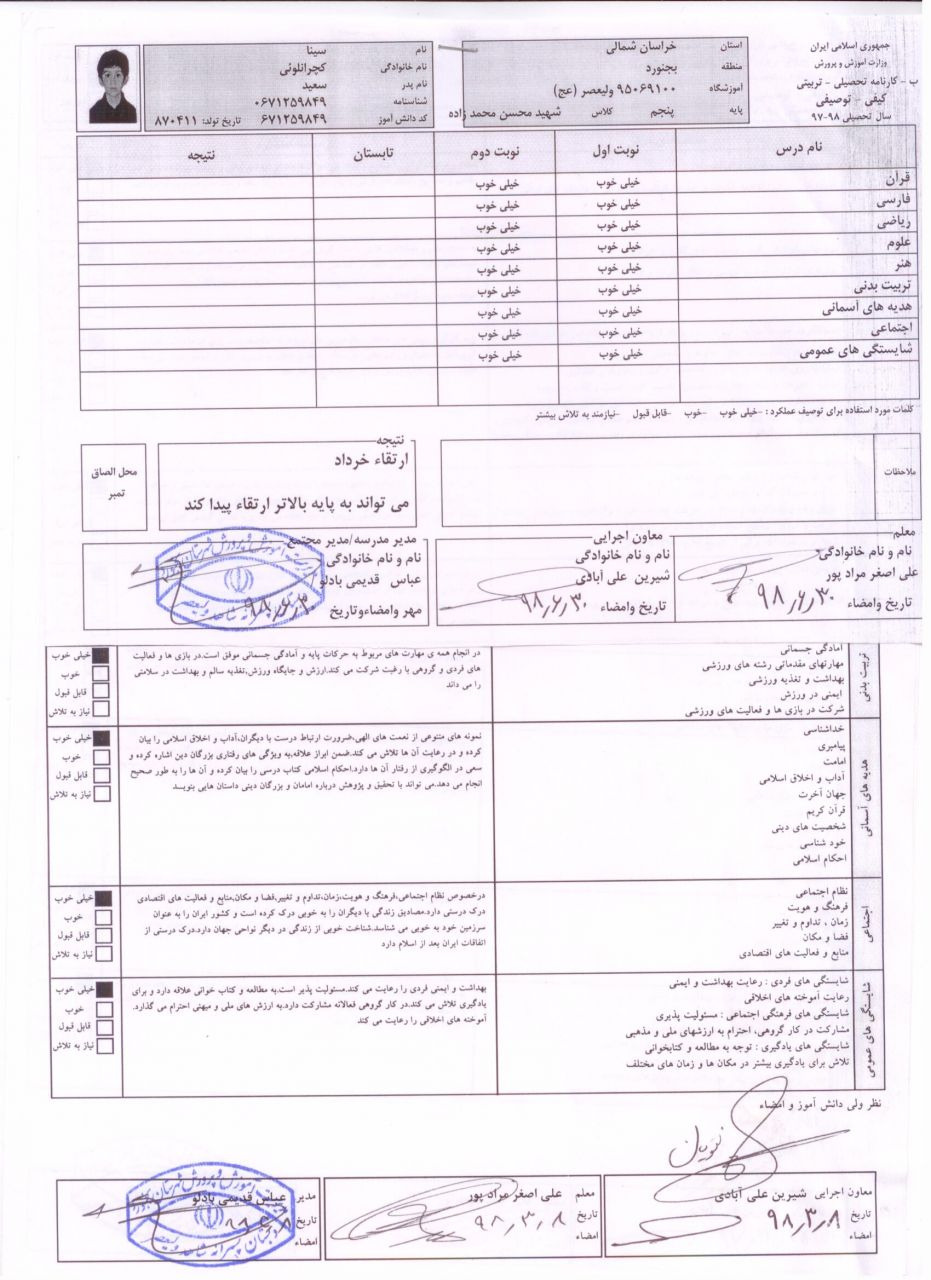 جمهوری اسلامی ایران
وزارت آموزش و پرورش
ب - کارنامه تحصیلی - تربیتی
کیفی - توصیفی
سال تحصیلی ۹۸-۹۷
استان خراسان شمالی
منطقه بجنورد
آموزشگاه ۹۵۰۶۹۱۰۰ ولیعصر (عج)
پایه پنجم کلاس شهید محسن محمد زاده
نام سینا
نام خانوادگی کچرانلوئی
نام پدر سعید
شناسنامه ۰۶۷۱۲۵۹۸۴۹
کد دانش آموز ۶۷۱۲۵۹۸۴۹ تاریخ تولد: ۸۷۰۴۱۱
نام درس نوبت اول نوبت دوم تابستان نتیجه
قرآن خیلی خوب خیلی خوب
فارسی خیلی خوب خیلی خوب
ریاضی خیلی خوب خیلی خوب
علوم خیلی خوب خیلی خوب
هنر خیلی خوب خیلی خوب
تربیت بدنی خیلی خوب خیلی خوب
هدیه های آسمانی خیلی خوب خیلی خوب
اجتماعی خیلی خوب خیلی خوب
شایستگی های عمومی خیلی خوب خیلی خوب
کلمات مورد استفاده برای توصیف عملکرد : -خیلی خوب -خوب -قابل قبول -نیازمند به تلاش بیشتر
ملاحظات
نتیجه
ارتقاء خرداد
می تواند به پایه بالاتر ارتقاء پیدا کند
محل الصاق
تمبر
معلم
نام و نام خانوادگی
علی اصغر مراد پور
تاریخ وامضاء ۹۸٫۶٫۳۰
معاون اجرایی
نام و نام خانوادگی
شیرین علی آبادی
تاریخ وامضاء ۹۸٫۶٫۳۰
مدیر مدرسه/مدیر مجتمع
نام و نام خانوادگی
عباس قدیمی بادلو
مهر وامضاءوتاریخ ۹۸٫۶٫۳۰
تربیت بدنی
آمادگی جسمانی
مهارتهای مقدماتی رشته های ورزشی
بهداشت و تغذیه ورزشی
ایمنی در ورزش
شرکت در بازی ها و فعالیت های ورزشی
در انجام همه ی مهارت های مربوط به حرکات پایه و آمادگی جسمانی موفق است.در بازی ها و فعالیت
های فردی و گروهی با رغبت شرکت می کند.ارزش و جایگاه ورزش،تغذیه سالم و بهداشت در سلامتی
را می داند
خیلی خوب
خوب
قابل قبول
نیاز به تلاش
هدیه های آسمانی
خداشناسی
پیامبری
امامت
آداب و اخلاق اسلامی
جهان آخرت
قرآن کریم
شخصیت های دینی
خود شناسی
احکام اسلامی
نمونه های متنوعی از نعمت های الهی،ضرورت ارتباط درست با دیگران،آداب و اخلاق اسلامی را بیان
کرده و در رعایت آن ها تلاش می کند.ضمن ابراز علاقه،به ویژگی های رفتاری بزرگان دین اشاره کرده و
سعی در الگوگیری از رفتار آن ها دارد.احکام اسلامی کتاب درسی را بیان کرده و آن ها را به طور صحیح
انجام می دهد.می تواند با تحقیق و پژوهش درباره امامان و بزرگان دینی داستان هایی بنویسد
خیلی خوب
خوب
قابل قبول
نیاز به تلاش
اجتماعی
نظام اجتماعی
فرهنگ و هویت
زمان ، تداوم و تغییر
فضا و مکان
منابع و فعالیت های اقتصادی
درخصوص نظام اجتماعی،فرهنگ و هویت،زمان،تداوم و تغییر،فضا و مکان،منابع و فعالیت های اقتصادی
درک درستی دارد.مصادیق زندگی با دیگران را به خوبی درک کرده است و کشور ایران را به عنوان
سرزمین خود به خوبی می شناسد.شناخت خوبی از زندگی در دیگر نواحی جهان دارد.درک درستی از
اتفاقات ایران بعد از اسلام دارد
خیلی خوب
خوب
قابل قبول
نیاز به تلاش
شایستگی های عمومی
شایستگی های فردی : رعایت بهداشت و ایمنی
رعایت آموخته های اخلاقی
شایستگی های فرهنگی اجتماعی : مسئولیت پذیری
مشارکت در کار گروهی، احترام به ارزشهای ملی و مذهبی
شایستگی های یادگیری : توجه به مطالعه و کتابخوانی
تلاش برای یادگیری بیشتر در مکان ها و زمان های مختلف
بهداشت و ایمنی فردی را رعایت می کند.مسئولیت پذیر است.به مطالعه و کتاب خوانی علاقه دارد و برای
یادگیری تلاش می کند.در کار گروهی فعالانه مشارکت دارد.به ارزش های ملی و میهنی احترام می گذارد.
آموخته های اخلاقی را رعایت می کند
خیلی خوب
خوب
قابل قبول
نیاز به تلاش
نظر ولی دانش آموز و امضاء
معاون اجرایی شیرین علی آبادی
تاریخ ۹۸٫۳٫۸
امضاء
معلم علی اصغر مراد پور
تاریخ ۹۸٫۳٫۸
امضاء
مدیر عباس قدیمی بادلو
تاریخ
امضاء